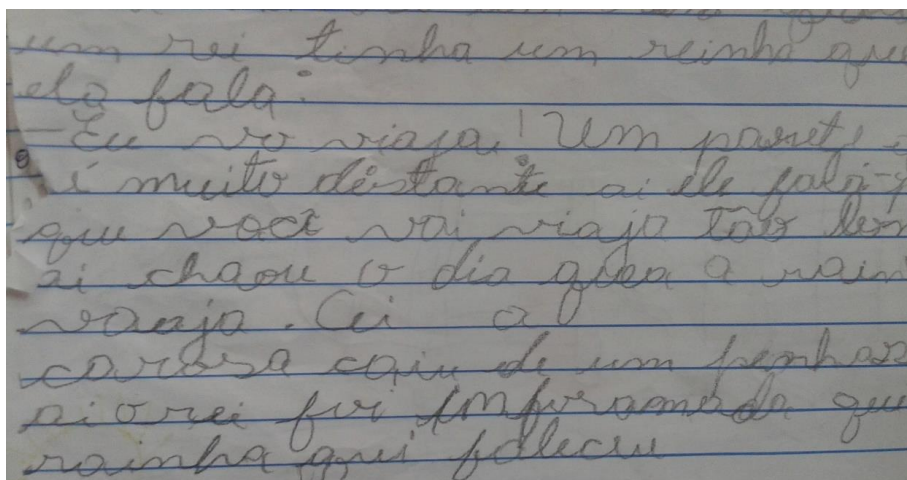 um rei tinha um reinho que
ela fala:
— Eu vo viaja! Um parete
é muito distante ai ele fala-
que você vai viaja tão lon
ai chaou o dia quea a rain
vaaja. Ai a
carosa caiu de um penhas
ai o rei foi imforamado que
rainha qui faleceu